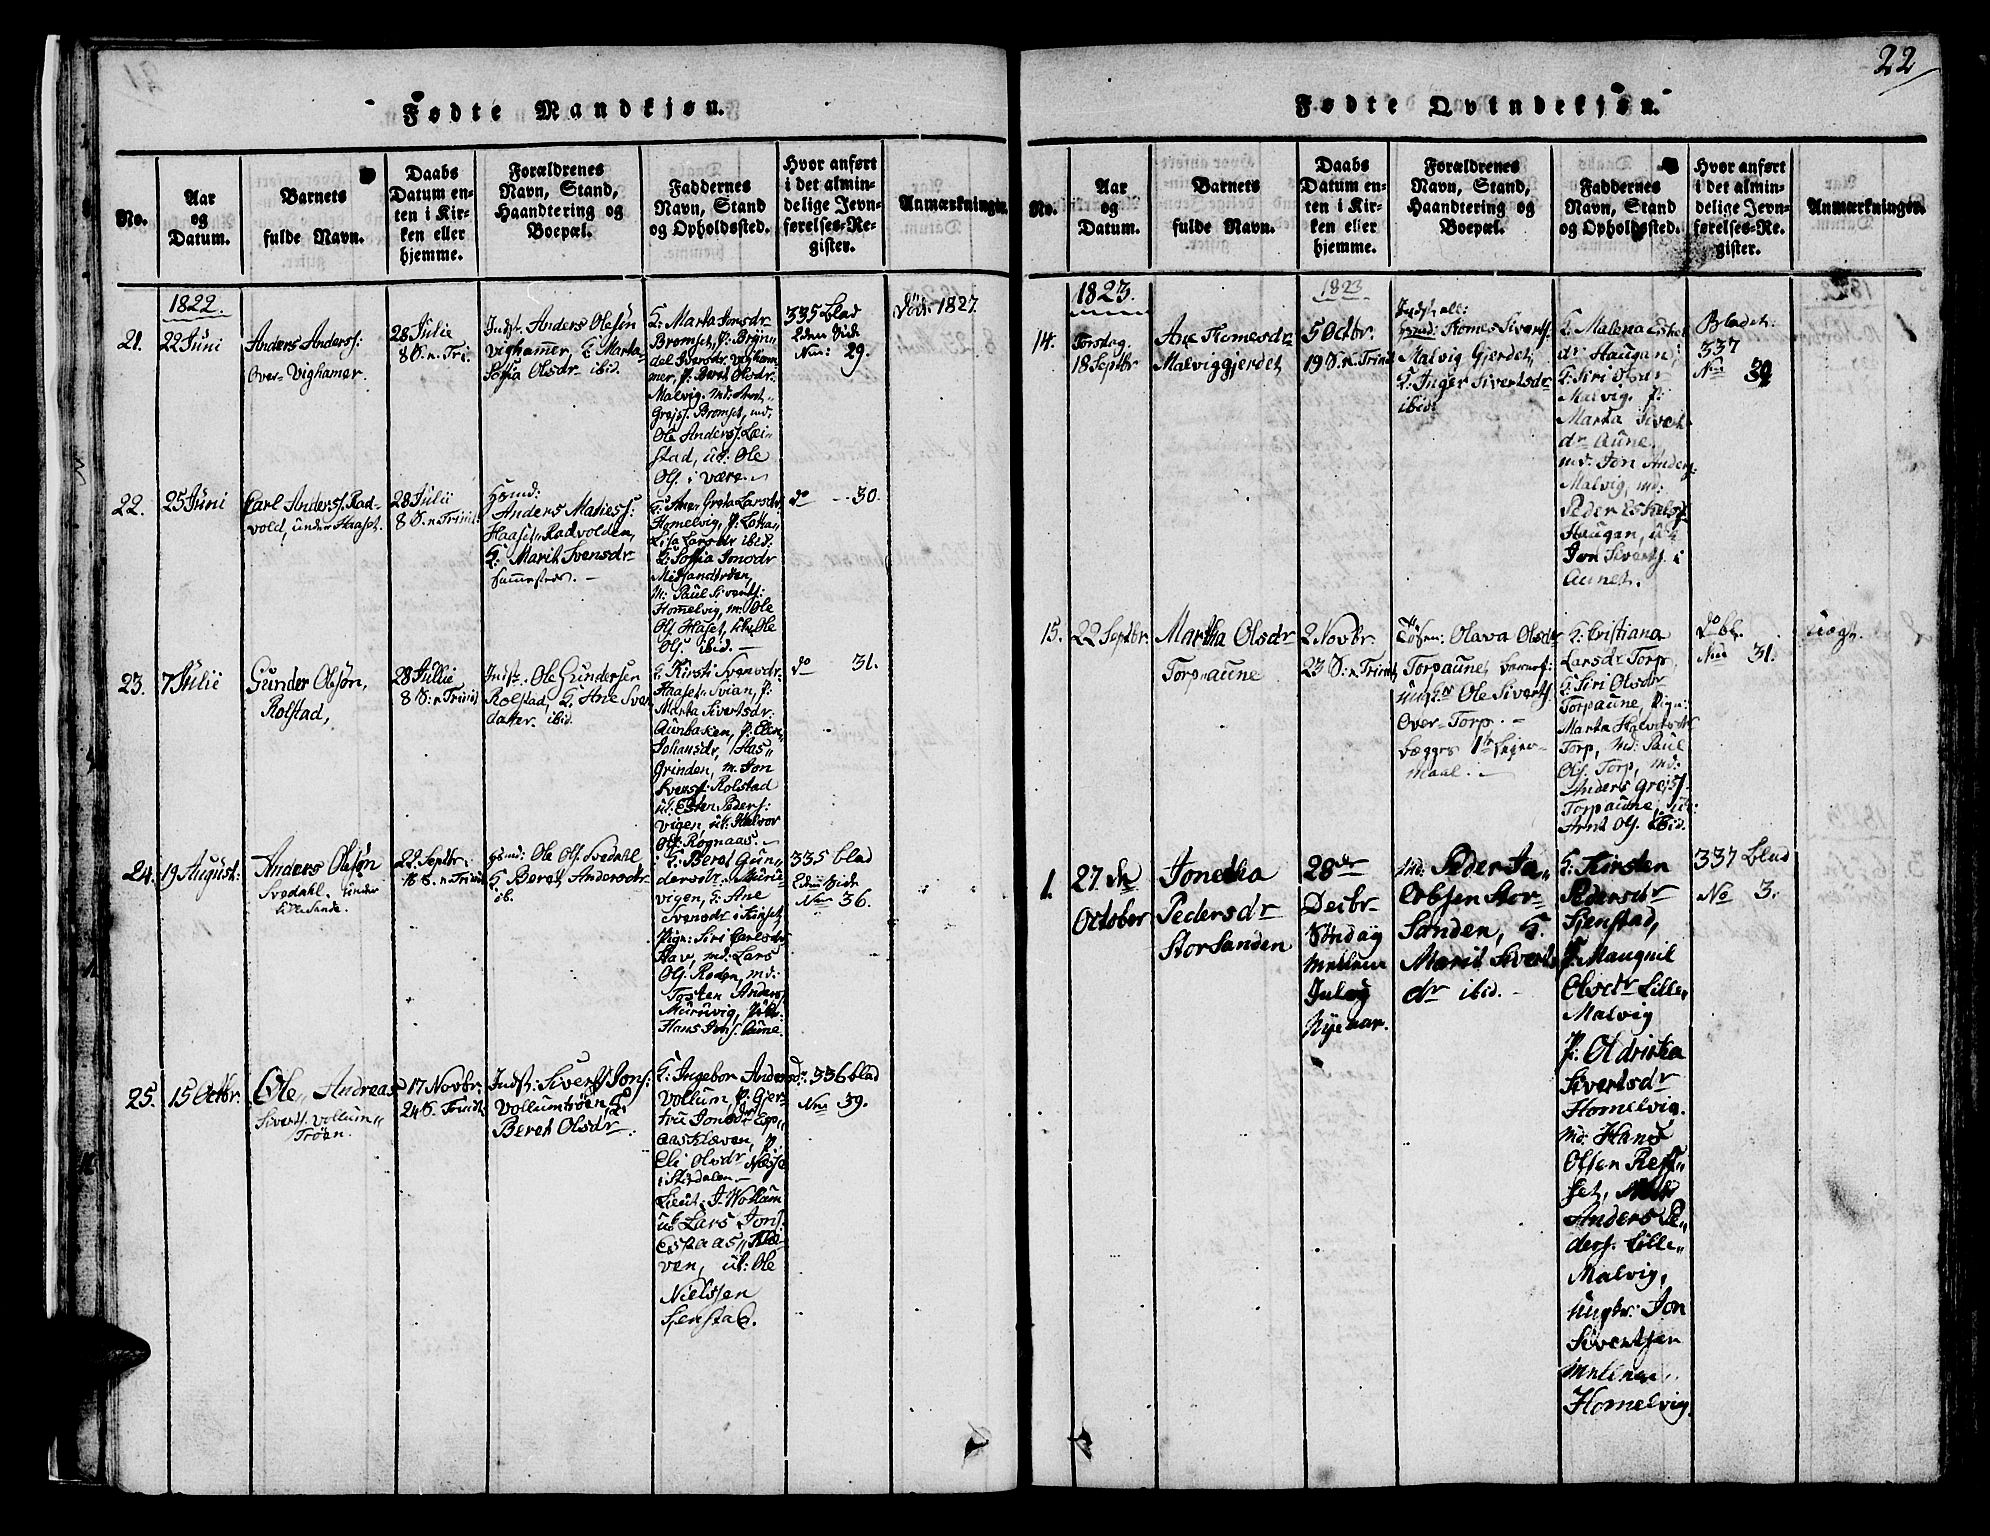 22
Fødte Mandkjøn.
No.
Aar
og
Datum.
Barnets
fulde Navn.
Daabs
Datum en-
ten i Kir-
ken eller
hjemme.
Forældrenes
Navn, Stand,
Haandtering og
Boepæl.
Faddernes
Navn, Stand
og Opholdssted.
Hvor anført
i det almin-
delige Jevn-
førelses-Re-
gister.
Anmærkninger.
1822.
21.
22 Juni
Anders Anders:
Over-Vighamer.
28 Julie
8 S. n. Tri:
Indst: Anders Olesøn
Vighammer, K. Marta
Sofia Olsdr ibid.
K: Marta Jonsdr
Bromset, P: Bryn„
del Iversdr. Vigham
mer, P: Beret Olsdr:
Malvig. md: Arnt„
Grejss. Bromset, md.
Ole Anderss. Lei-
stad, ul: Ole
Ols. i være.
335 blad
Nro: 29.
Død: 1827.
22.
25 Juni
Carl Anderss. Rad-
vold, under Haaset.
28 Julii
8 S. n. Trinit:
Huusmd:
Anders Matiess:
Haaset-Radvolden,
K: Marit Svensdr
K: Ane Greta Larsdr
Homelvig, P: Lotta
Lisa Larsdr ibid:
K: Soffia Jonsdr
Midsandtrøen,
M: Paul Siverts:
Homelvig, m: Ole
Ols. Haaset, ul: Ole
Ols. ibid.
do
30.
23.
7 Julii
Gunder Olesøn,
Rolstad,
28 Julie
8 S. n. Trinit
Indst. Ole Gundersen
Rolstad, K. Ane Sven
datter. ibid.
K: Kirsti Svensdr
Haaset-Svian, P:
Marta Sivertsdr.
Aunbaken, P: Elen
Johansdr, Has„
Grinden, m. Jon
Svenss: Rolstad
ul: Esten Peders:
Vigen, ul: Halvor
Ols. Rognaas.
do
31.
24.
19 August:
Anders Olesøn
Svedahl. under
Lillesande.
22 Septbr:
16 S. n. Trinit
Huusmd: Ole Ols. Svedahl
K Beret Andersdr
ib.
K: Beret Gun„
dersdr. Muru„
vigen, K: Ane
Svensdr i Kinset,
Pign: Siri Carlsdr
Hav, md: Lars
Ols. Roden, md:
Tosten Anders.
Muruvig,
Hans Jons. Aune
335 blad
Nro 36.
25.
15 Octbr.
Ole Andreas
Siverts. Vollum„
Trøen.
17 Novbr:
24 S. Trinit
Indst: Sivert Jons:
Vollumtrøen, K:
Beret Olsdr:
K: Ingebor Andersdr.
Vollum, P: Gjer„
tru Jonsdr Esp„
aasKleven, P:
Eli Olsdr
i Stjørdalen
Lieut: J. Wollum
ul Lars Jons:
Espaas„Kle„
ven, ul: Ole
Nielssen
Sjenstad.
336 blad
Nro 39.
Fødte Qvindekjøn.
No.
Aar
og
Datum.
Barnets
fulde Navn.
Daabs
Datum en-
ten i Kir-
ken eller
hjemme.
Forældrenes
Navn, Stand,
Haandtering og
Boepæl.
Faddernes
Navn, Stand
og Opholdssted.
Hvor anført
i det almin-
delige Jevn-
førelses-Re-
gister.
Anmærkninger.
1823.
1823
14.
Torsdag.
18 Septbr
Ane Tomesdr
Malviggjerdet
5 Octbr.
19 S. n. Trinit
Tomes Siverts.
Malvig Gjerdet,
K. Inger Sivertsdr
ibid.
K: Malena Eskel
dr: Haugan,
K: Siri Olsdr
Malvig. P:
Marta Sivert
dr Aune.
md. Jon Anders:
Malvig, md:
Peder Eskels.
Haugan, ul:
Jon Siverts. i
Aunet.
Bladet:
337
Nro
15.
22 Septbr.
Martha Olsdr
Torpaune
2 Novbr.
23 S. n. Trinit
Tøsen: Olava Olsdr
Torpaunet, barnef:
Ungkr Ole Siverts.
Over-Torp.
begges 1te Leier-
maal.
K: Kristiana
Larsdr Torp,
K: Siri Olsdr
Torpaune, Pign:
Marta Halvorsdr
Torp, md: Paul
Ols. Torp, md:
Anders Grejss.
Torpaune, ul:
Arnt Ols. ibid.
Do bl.
Nro 31.
uægt.
1.
27de
October
Jonetha
Pedersdr
Storsanden
28de
Decbr
Søndag
mellem
Jul og
Nyeaar.
md. Peder Ja„
cobsen Stor-
Sanden, K.
Marit Siverts
dr ibid.
K: Kirsten
Pedersdr
Sjenstad,
P. Maugnil
Olsdr Lille„
Malvig
P: Oldrikka
Sivertsdr
Homelvig.
md: Hans
Olsen Reff„
set,
Anders Pe„
ders. Lille„
Malvig,
Ungkr: Jon
Sivertsen
Mellem
Homelvig.
337 blad
No 3.